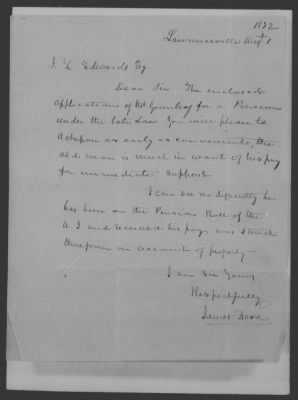 1832
Lawrenceville Augt 1
J. L. Edwards Esq.
Dear Sir The enclosed
application of Wm Greenleaf for a Pension
under the late Law you will please to
Act upon as early as convenient, the
old man is much in want of his pay
for immediate support
I can see no difficulty he
has been on the Pension Roll of the
U. S and received his pay & was struck
therefrom on account of property
I am Sir Yours
Respectfully
James